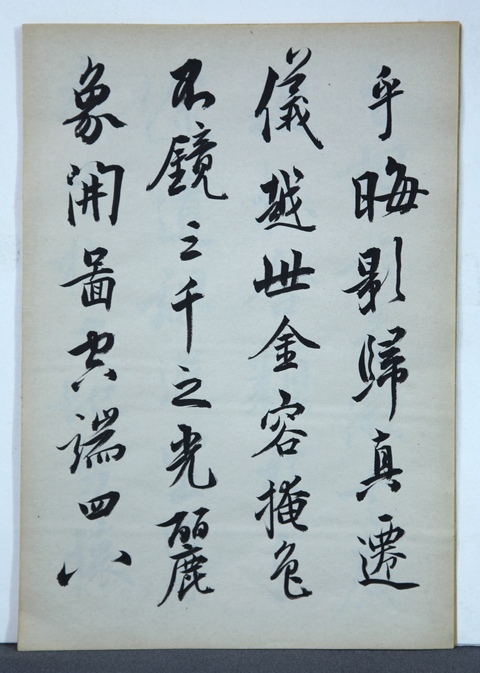 乎晦影歸真遷
儀越世金容掩色
不鏡三千之光麗
象開啚空端四八